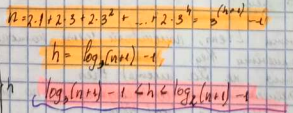 n=2·1+2·3+2·3²+...+2·3ʰ=3^(h+1)-1
h=log₃(n+1)-1
log₃(n+1)-1<h<log₂(n+1)-1